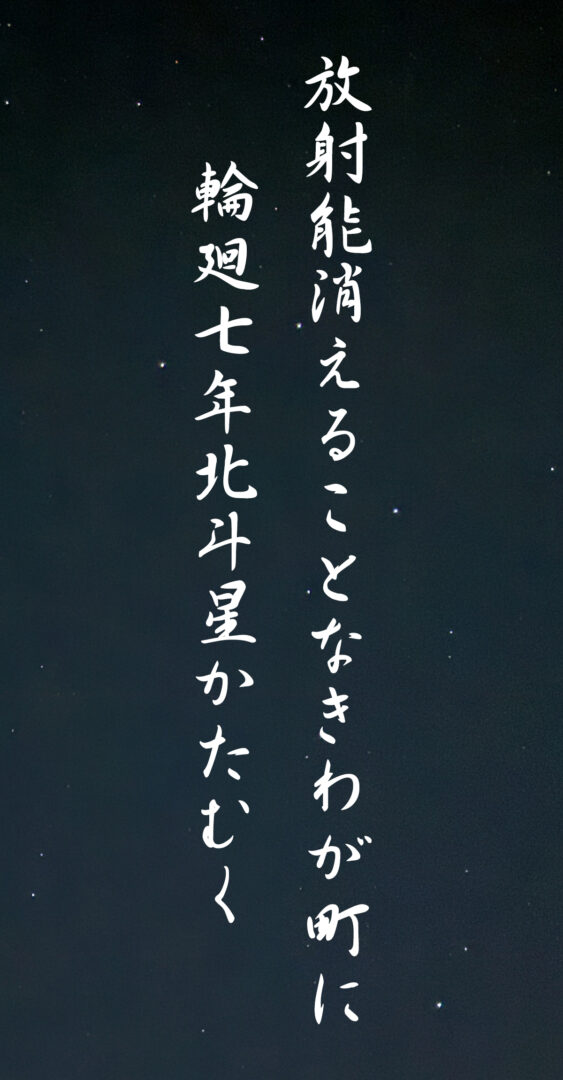 放射能消えることなきわが町に
輪廻七年北斗星かたむく